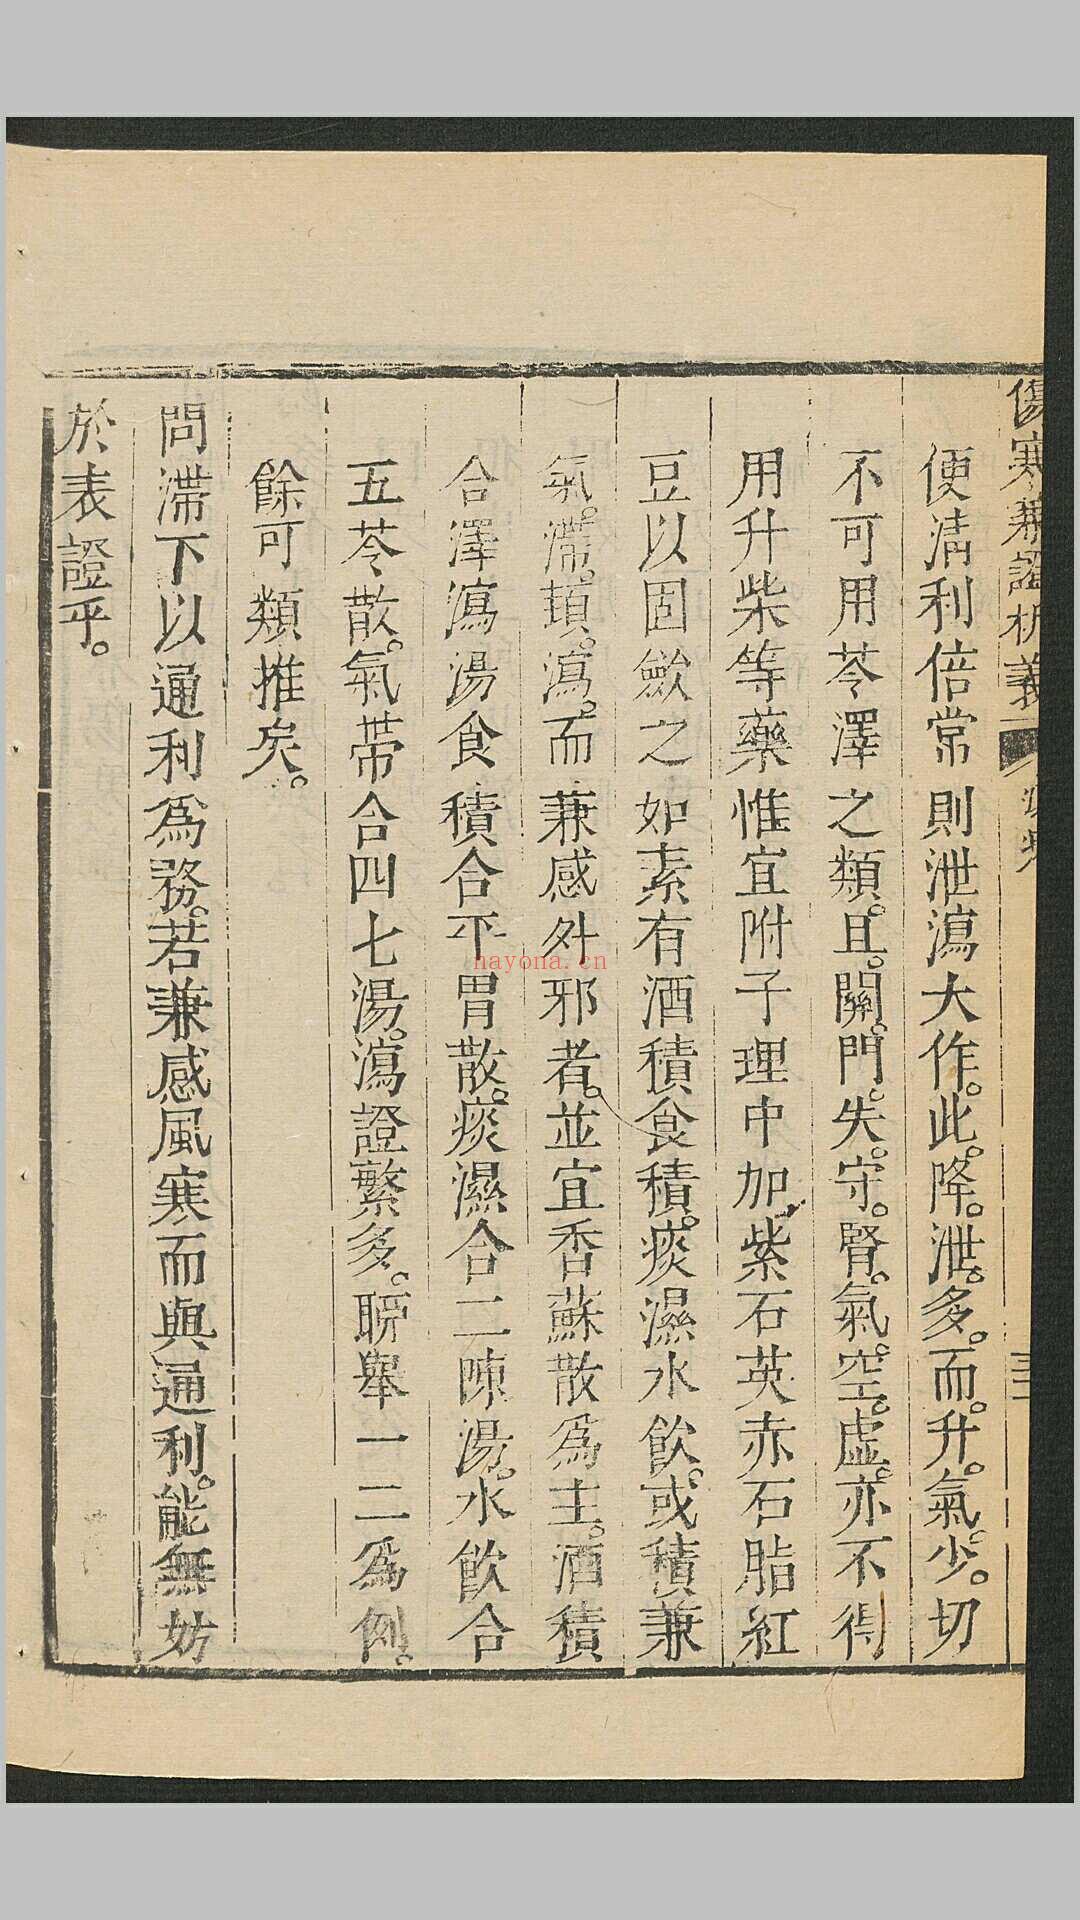 傷寒兼證析義
便淸利倍常則泄瀉大作。此。降。泄。多。而。升。氣。少。切
不可用苓澤之類。且。關。門。失。守。腎。氣。空。虛。亦不得
用升柴等藥惟宜附子理中加紫石英赤石脂紅
豆以固斂之如素有酒積食積。痰濕水飲。或積兼
氣。滯。頻。瀉。而兼感外邪者。並宜香蘇散爲主。酒積
合澤瀉湯食積合平胃散。痰濕合二陳湯。水飲合
五苓散。氣滯合四七湯。瀉證繁多。聊舉一二爲例。
餘可類推矣。
問滯下以通利爲務。若兼感風寒而與通利。能無妨
於表證乎。
nayona.cn